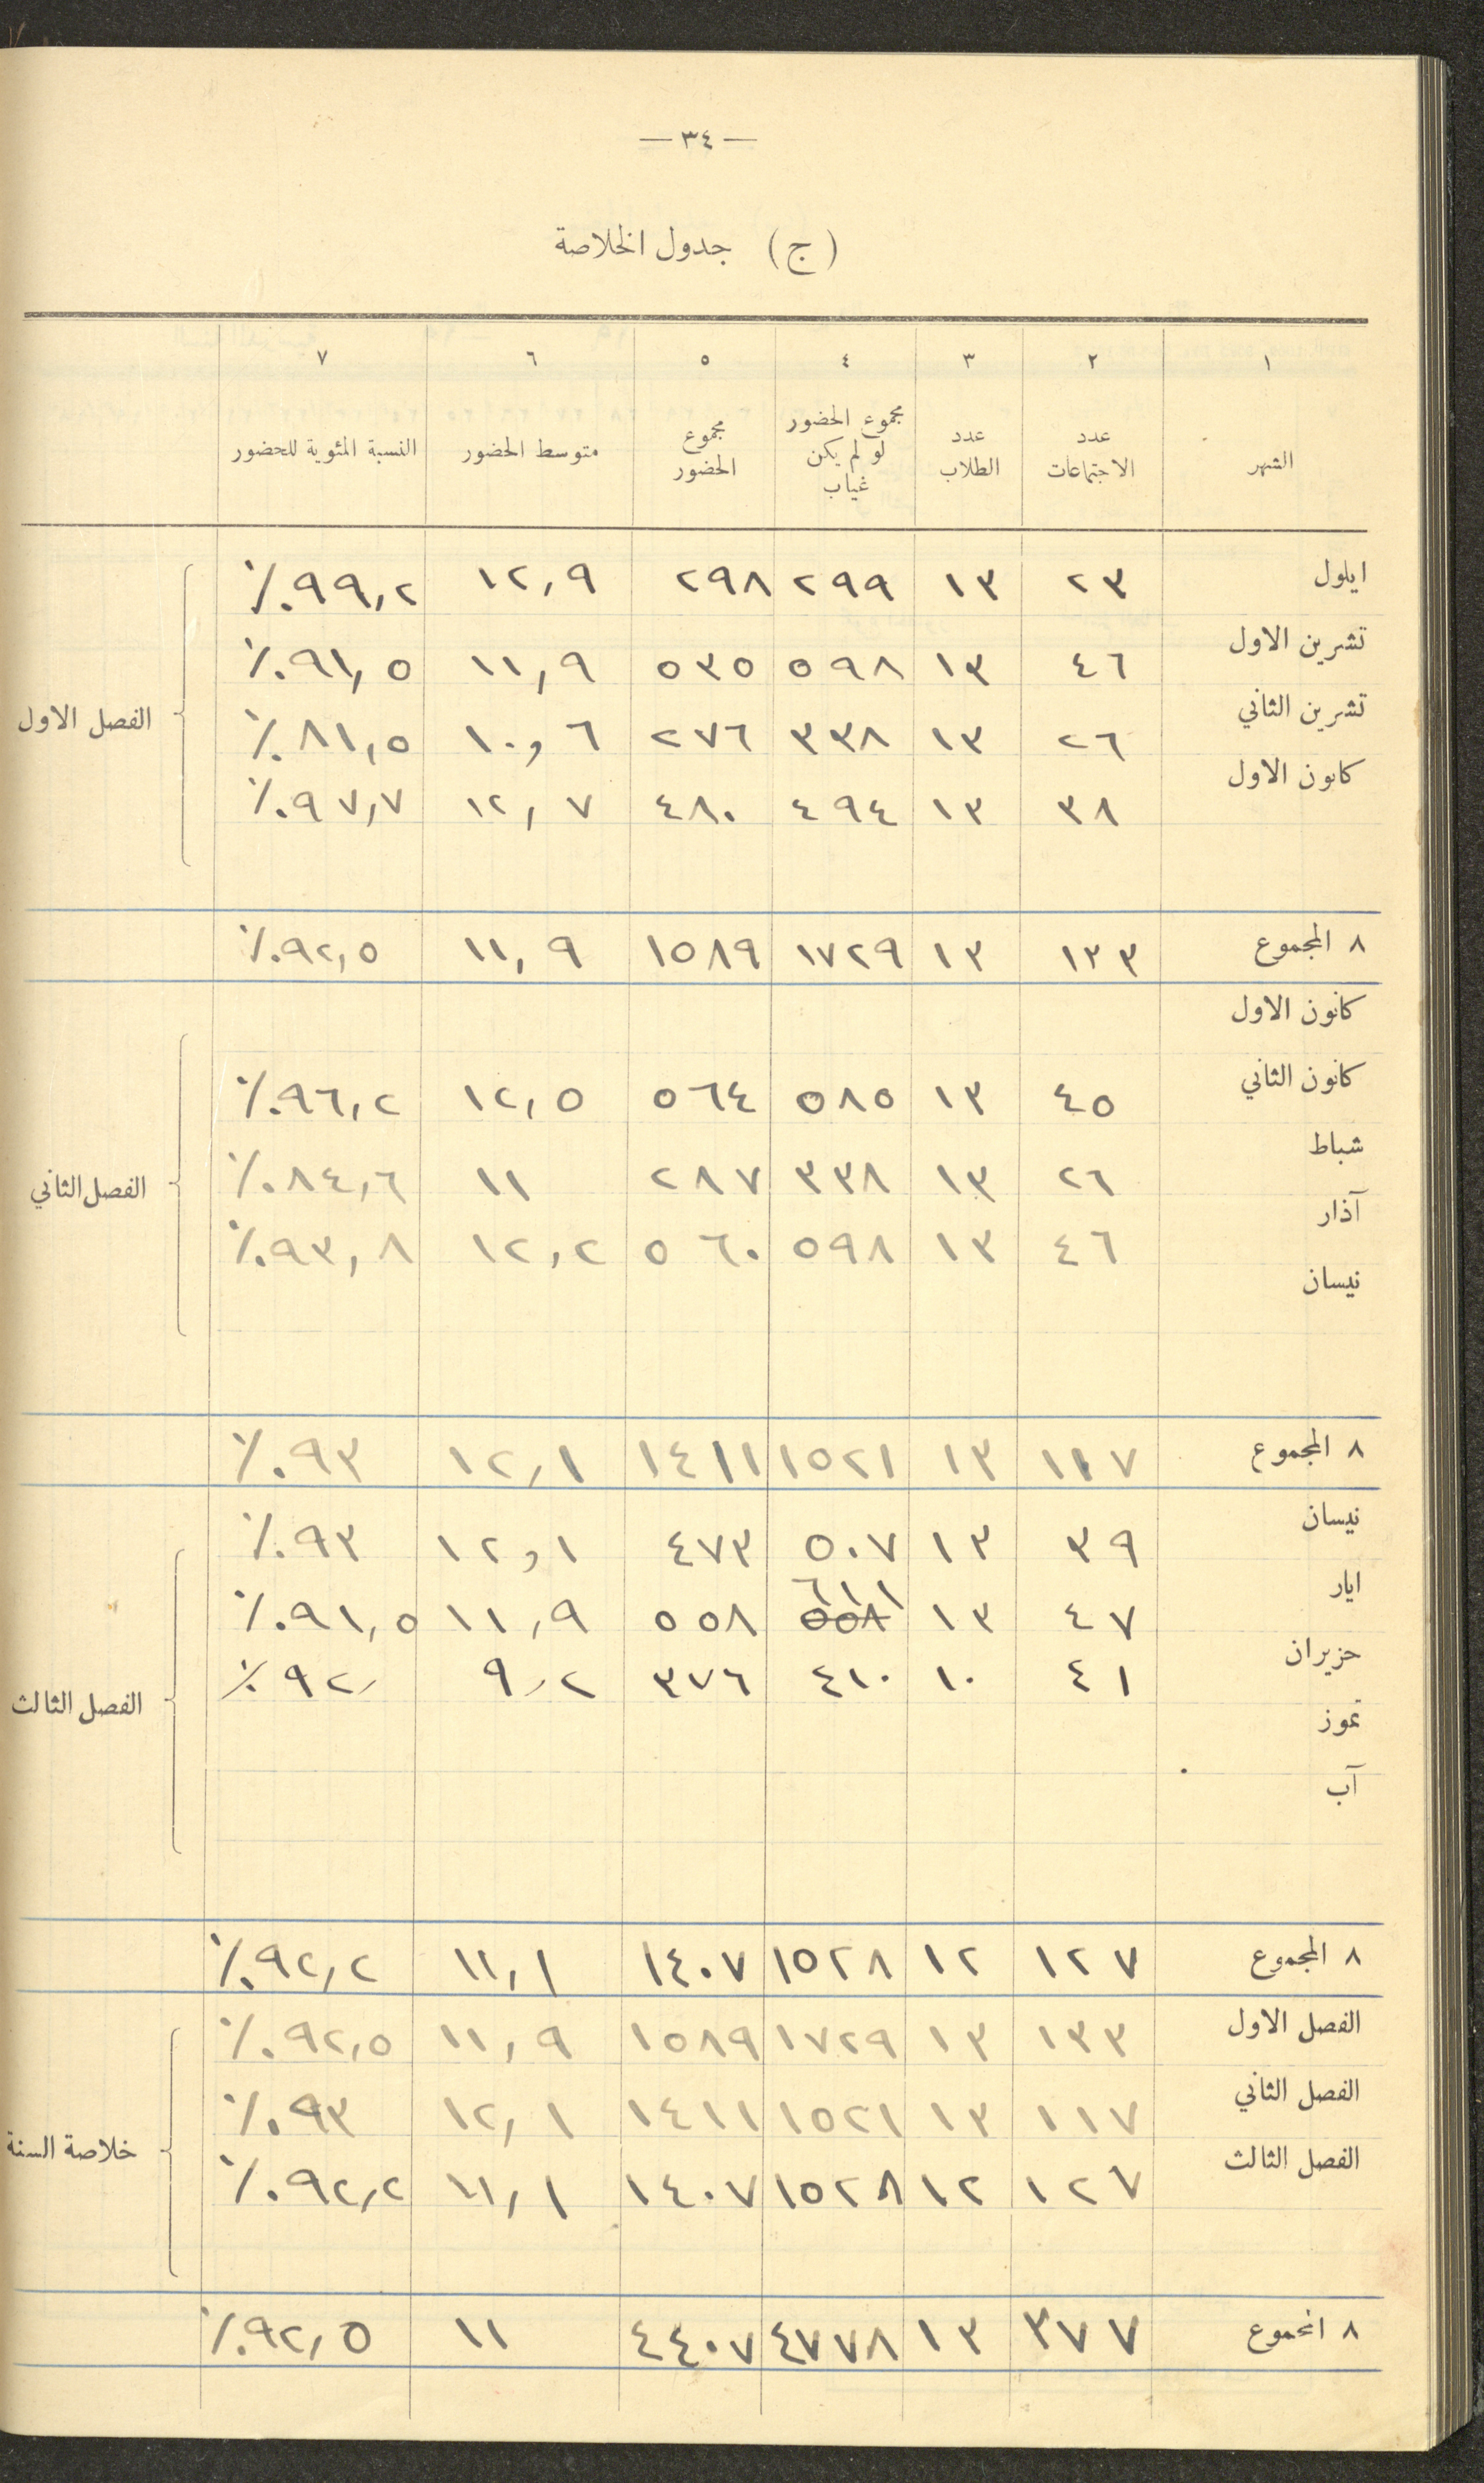 — ٣٤ —
(ج) جدول الخلاصة
١ ٢ ٣ ٤ ٥ ٦ ٧
الشهر عدد الاجتماعات عدد الطلاب مجموع الحضور لو لم يكن غياب مجموع الحضور متوسط الحضور النسبة المئوية للحضور
ايلول ٢٣ ١٣ ٢٩٩ ٢٩٨ ١٢,٩ ٩٩,٢٪
تشرين الاول ٤٦ ١٣ ٥٩٨ ٥٣٥ ١١,٩ ٩١,٥٪
تشرين الثاني ٢٦ ١٣ ٣٣٨ ٢٧٦ ١٠,٦ ٨١,٥٪
الفصل الاول
كانون الاول ٣٨ ١٣ ٤٩٤ ٤٨٠ ١٢,٧ ٩٧,٧٪
٨ المجموع ١٣٣ ١٣ ١٧٢٩ ١٥٨٩ ١١,٩ ٩٢,٥٪
كانون الاول
كانون الثاني ٤٥ ١٣ ٥٨٥ ٥٦٤ ١٢,٥ ٩٦,٢٪
شباط ٢٦ ١٣ ٣٣٨ ٢٨٧ ١١ ٨٤,٦٪
الفصل الثاني
آذار ٤٦ ١٣ ٥٩٨ ٥٦٠ ١٢,٢ ٩٣,٨٪
نيسان
٨ المجموع ١١٧ ١٣ ١٥٢١ ١٤١١ ١٢,١ ٩٣٪
نيسان ٣٩ ١٣ ٥٠٧ ٤٧٣ ١٢,١ ٩٣٪
ايار ٤٧ ١٣ ٦١١ ٥٥٨ ٥٥٨ ١١,٩ ٩١,٥٪
حزيران ٤١ ١٠ ٤١٠ ٣٧٦ ٩,٢ ٩٢,٪
الفصل الثالث
تموز
آب
٨ المجموع ١٢٧ ١٢ ١٥٢٨ ١٤٠٧ ١١,١ ٩٢,٢٪
الفصل الاول ١٣٣ ١٣ ١٧٢٩ ١٥٨٩ ١١,٩ ٩٢,٥٪
الفصل الثاني ١١٧ ١٣ ١٥٢١ ١٤١١ ١٢,١ ٩٣٪
خلاصة السنة
الفصل الثالث ١٢٧ ١٢ ١٥٢٨ ١٤٠٧ ١١,١ ٩٢,٢٪
٨ المجموع ٣٧٧ ١٣ ٤٧٧٨ ٤٤٠٧ ١١ ٩٢,٥٪